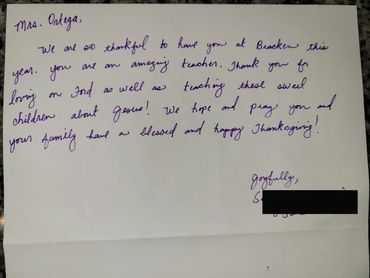 Mrs. Ortega,
We are so thankful to have you at Bracken this
year. You are an amazing teacher. Thank you for
loving on Ford as well as teaching these sweet
children about Jesus! We hope and pray you and
your family have a blessed and happy Thanksgiving!
Joyfully,